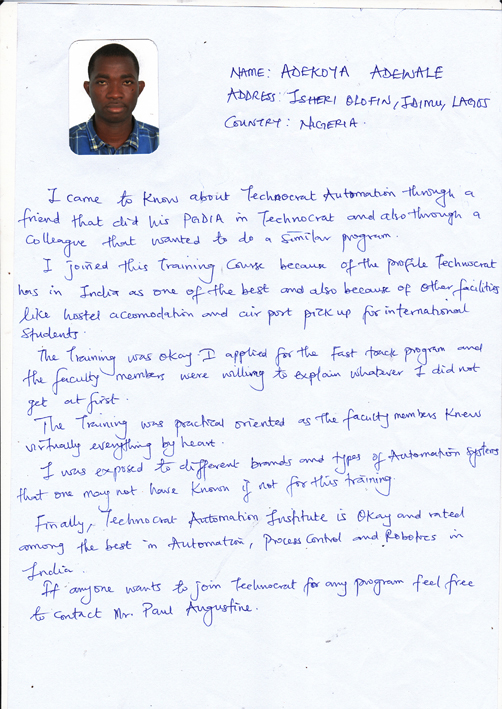 NAME: ADEKOYA ADEWALE
ADDRESS: ISHERI OLOFIN, IDIMU, LAGOS
COUNTRY: NIGERIA.
I came to know about Technocrat Automation through a
friend that did his PGDIA in Technocrat and also through a
colleague that wanted to do a similar program.
I joined this Training Course because of the profile Technocrat
has in India as one of the best and also because of other facilities
like hostel accomodation and air port pick up for international
students.
The Training was okay I applied for the fast track program and
the faculty members were willing to explain whatever I did not
get at first.
The Training was practical oriented as the faculty members knew
virtually everything by heart.
I was exposed to different brands and types of Automation systems
that one may not have known if not for this training.
Finally, Technocrat Automation Institute is Okay and rated
among the best in Automation, Process Control and Robotics in
India.
If anyone wants to join Technocrat for any program feel free
to contact Mr. Paul Augustine.